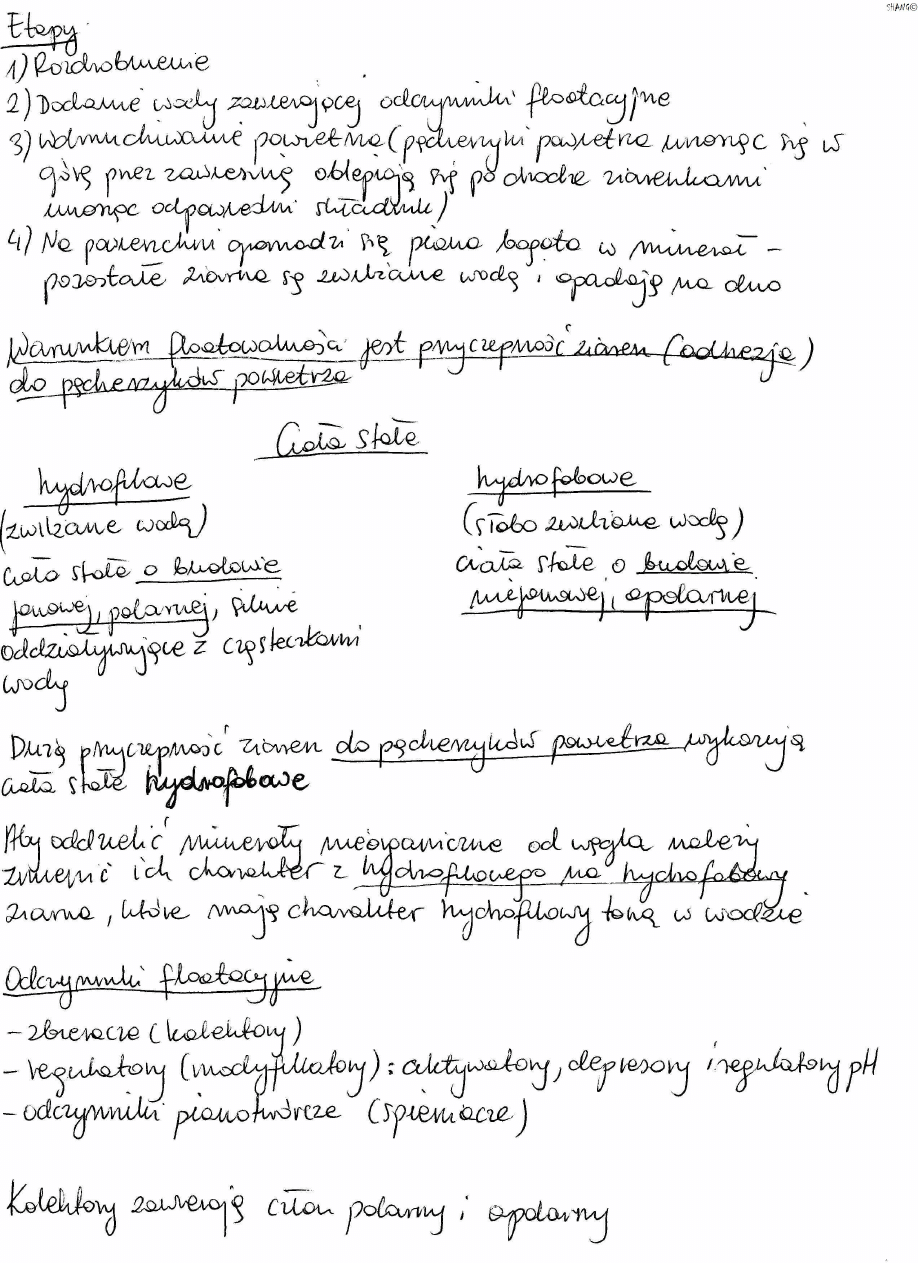 SHANG©
Etapy
1) Rozdrobnienie
2) Dodanie wody zawierającej odczynniki flotacyjne
3) Wdmuchiwanie powietrza (pęcherzyki powietrza unosząc się w
górę przez zawiesinę oblepiają się po drodze ziarenkami
unosząc odpowiedni składnik)
4) Na powierzchni gromadzi się piana bogata w minerał -
pozostałe ziarna są zwilżane wodą i opadają na dno
Warunkiem flotowalności jest przyczepność ziaren (adhezja)
do pęcherzyków powietrza
Ciała stałe
hydrofilowe
(zwilżane wodą)
ciała stałe o budowie
jonowej, polarnej, silnie
oddziaływujące z cząsteczkami
wody
hydrofobowe
(słabo zwilżane wodą)
ciała stałe o budowie
niejonowej, apolarnej
Dużą przyczepność ziaren do pęcherzyków powietrza wykazują
ciała stałe hydrofobowe
Aby oddzielić minerały nieorganiczne od węgla należy
zmienić ich charakter z hydrofilowego na hydrofobowy
ziarna, które mają charakter hydrofilowy toną w wodzie
Odczynniki flotacyjne
- zbieracze (kolektory)
- regulatory (modyfikatory): aktywatory, depresory i regulatory pH
- odczynniki pianotwórcze (spieniacze)
Kolektory zawierają człon polarny i apolarny